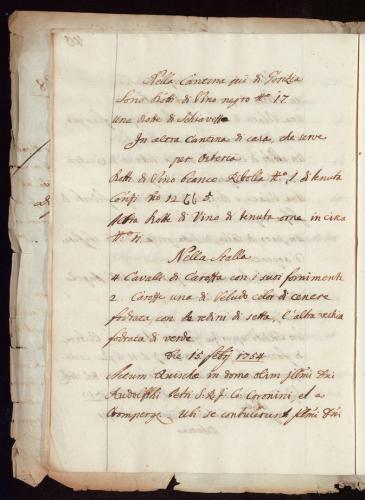 Nella Cantina qui di Gorizia
Sono Botti di Vino negro No. 17
una Botte di Schiavotto
In altra Cantina di casa, che serve
per Osteria
Botti di Vino bianco Ribolla No. 1. di tenuta
Conzi No 12
altra Botte di Vino di tenuta orne in circa
No. 4.
Nella Stalla
4 Cavalli di Carozza con i suoi fornimenti
2. Carozze una di Veludo color di cenere
fodrata con le redini di setta, l'altra vechia
fodrata di verde
Die 15. 1754
Actum in domo olim Illmi Dni
Rudolphi S.R.I. Co. Coronini, et a
Cromperg. Ubi se contulerunt Illmi Dni